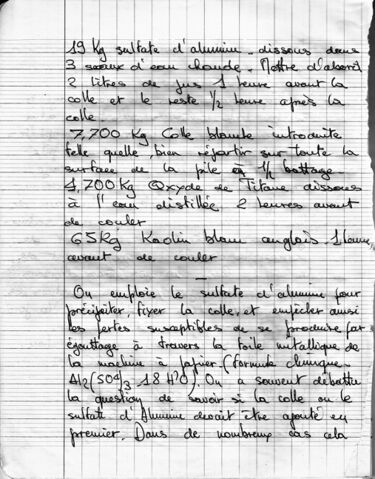 19 Kg sulfate d'alumine - dissous dans
3 seaux d'eau chaude. Mettre d'abord
2 litres de jus 1 heure avant la
colle et le reste 1/2 heure après la
colle.
7,700 Kg Colle blanche introduite
telle quelle, bien répartir sur toute la
surface de la pile en 1/2 battage
1,700 Kg Oxyde de Titane dissous
à l'eau distillée 2 heures avant
de couler
65 Kg Kaolin blanc anglais 1 heure
avant de couler
On emploie le sulfate d'alumine pour
précipiter, fixer la colle, et empêcher aussi
les pertes susceptibles de se produire par
égouttage à travers la toile métallique de
la machine à papier. (formule chimique
Al2(SO4)3 - 18 H2O). On a souvent débattu
la question de savoir si la colle ou le
sulfate d'Alumine devait être ajouté en
premier. Dans de nombreux cas cela